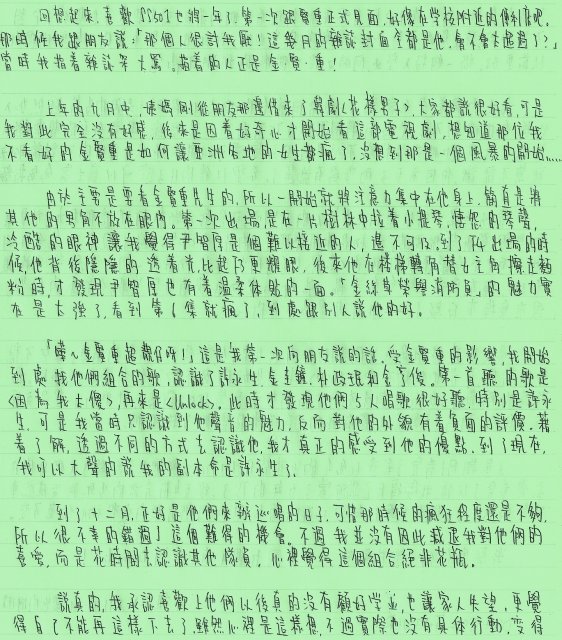 回想起來,喜歡SS501也將一年了。第一次跟賢重正式見面,好像在學校附近的便利店吧。
那時候我跟朋友說:「那個人很討我厭!這幾月的雜誌封面全都是他,會不會太超過了?」
當時我指着雜誌架大罵。指着的人正是金賢重!
上年的九月中,媽媽剛從朋友那邊借來了韓劇《花樣男子》,大家都說很好看,可是
我對此完全沒有好感,後來是因着好奇心才開始看這部電視劇,想知道那位我
不看好的金賢重是如何讓亞洲各地的女生都瘋了,沒想到那是一個風暴的開始.....
由於主要是要看金賢重先生的,所以一開始就將注意力集中在他身上,簡直是將
其他的男角不放在眼內。第一次出場是在一片樹林中拉着小提琴,悽怨的琴聲、
冷酷的眼神讓我覺得尹智厚是個難以接近的人,遙不可及,到了F4出場的時
候,他背後隱隱的透着光,比起F3更耀眼,後來他在樓梯轉角替女主角擦走麵
粉時,才發現尹智厚也有着溫柔体貼的一面。「金絲草榮譽消防員」的魅力實
在是太強了,看到第6集就瘋了,到處跟別人說他的好。
「嘩~金賢重超靚仔呀!」這是我第一次向朋友說的話。受金賢重的影響,我開始
到處找他們組合的歌,認識了許永生、金圭鐘、朴政珉和金亨俊。第一首聽的歌是
<因為我太傻>,再來是<Unlock>。此時才發現他們5人唱歌很好聽,特別是許永
生,可是我當時只認識到他聲音的魅力,反而對他的外貌有着負面的評價。藉
着了解,透過不同的方式去認識他,我才真正的感受到他的優點。到了現在,
我可以大聲的說我的副本命是許永生了。
到了十二月,正好是他們來辦巡唱的日子,可惜那時候的瘋狂程度還是不夠,
所以很不幸的錯過了這個難得的機會。不過我並沒有因此減退我對他們的
喜愛,而是花時間去認識其他隊員,心裡覺得這個組合絕非花瓶。
說真的,我承認喜歡上他們以後真的沒有顧好學業,也讓家人失望,更覺
得自己不能再這樣下去了,雖然心裡是這樣想,不過實際也沒有具体行動,變得